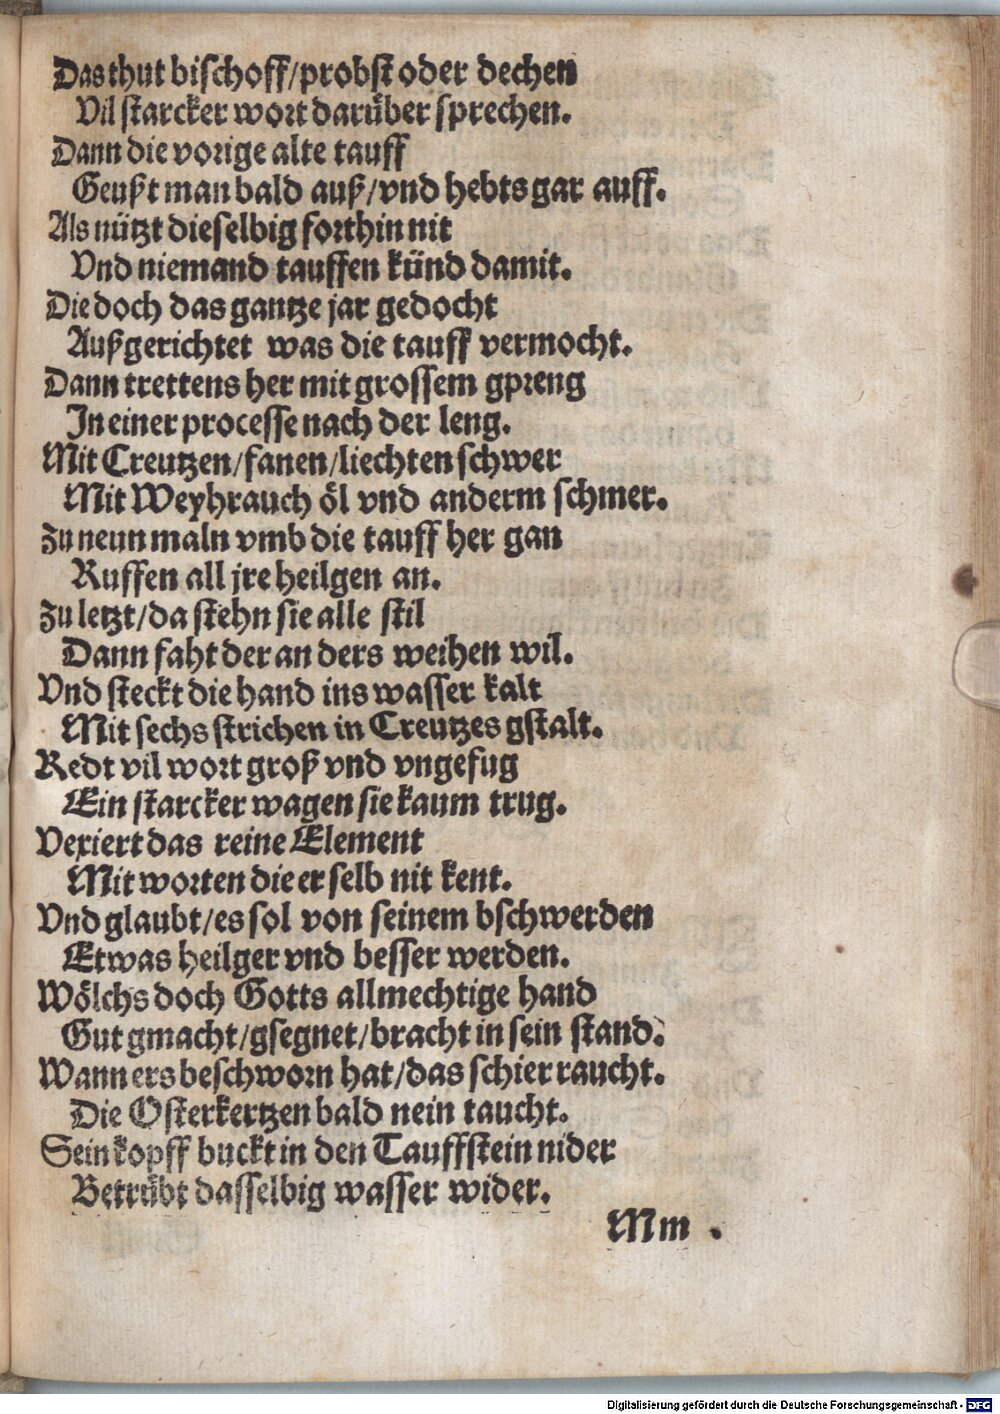 Das thut bischoff/probst oder dechen
Vil starcker wort darüber sprechen.
Dann die vorige alte tauff
Geußt man bald auß/vnd hebts gar auff.
Als nützt dieselbig forthin nit
Vnd niemand tauffen künd damit.
Die doch das gantze jar gedocht
Außgerichtet was die tauff vermocht.
Dann trettens her mit grossem gpreng
In einer processe nach der leng.
Mit Creutzen/fanen/liechten schwer
Mit Weyhrauch öl vnd anderm schmer.
Zu neun maln vmb die tauff her gan
Ruffen all jre heilgen an.
Zu letzt/da stehn sie alle stil
Dann faht der an ders weihen wil.
Vnd steckt die hand ins wasser kalt
Mit sechs strichen in Creutzes gstalt.
Redt vil wort groß vnd vngefug
Ein starcker wagen sie kaum trug.
Vexiert das reine Element
Mit worten die er selb nit kent.
Vnd glaubt/es sol von seinem bschwerden
Etwas heilger vnd besser werden.
Wölchs doch Gotts allmechtige hand
Gut gmacht/gsegnet/bracht in sein stand.
Wann ers beschworn hat/das schier raucht.
Die Osterkertzen bald nein taucht.
Sein kopff buckt in den Tauffstein nider
Betrübt dasselbig wasser wider.
Mm .
Digitalisierung gefördert durch die Deutsche Forschungsgemeinschaft - DFG